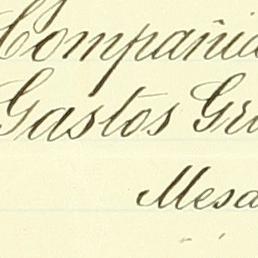 Compañia
Gastos Gr
Mesa